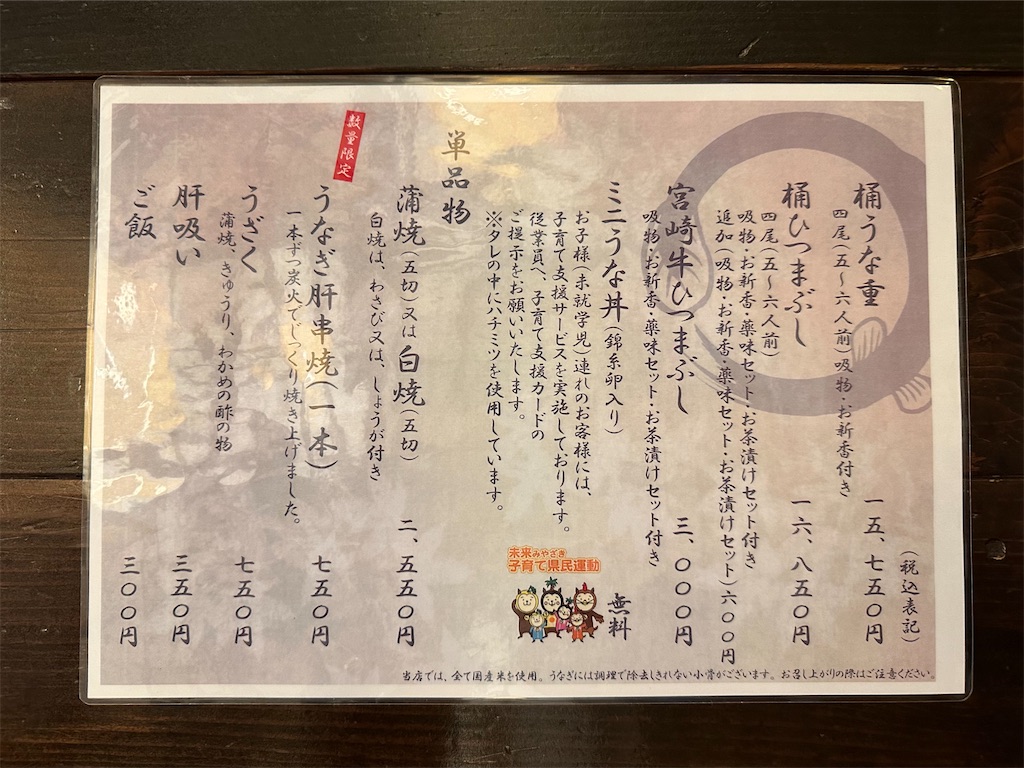 (税込表記)
桶うな重 一五、七五〇円
四尾(五〜六人前)吸物・お新香付き
桶ひつまぶし 一六、八五〇円
四尾(五〜六人前)
吸物・お新香・薬味セット・お茶漬けセット付き
追加(吸物・お新香・薬味セット・お茶漬けセット)六〇〇円
宮崎牛ひつまぶし 三、〇〇〇円
吸物・お新香・薬味セット・お茶漬けセット付き
ミニうな丼(錦糸卵入り) 無料
お子様(未就学児)連れのお客様には、
子育て支援サービスを実施しております。
従業員へ、子育て支援カードの
ご提示をお願いいたします。
※タレの中にハチミツを使用しています。
未来みやざき
子育て県民運動
単品物
蒲焼(五切)又は白焼(五切) 二、五五〇円
白焼は、わさび又は、しょうが付き
数量限定
うなぎ肝串焼(一本) 七五〇円
一本ずつ炭火でじっくり焼き上げました。
うざく 七五〇円
蒲焼、きゅうり、わかめの酢の物
肝吸い 三五〇円
ご飯 三〇〇円
当店では、全て国産米を使用。うなぎには調理で除去しきれない小骨がございます。お召し上がりの際はご注意ください。